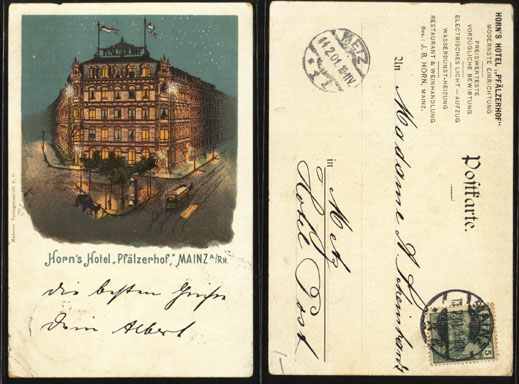 PFÄLZERHOF
Horn's Hotel „Pfälzerhof," MAINZ A/RH.
die besten Grüße
Dein Albert
HORN'S HOTEL „PFÄLZERHOF"
MODERNSTE EINRICHTUNG
PREISWERTESTE
VORZÜGLICHE BEWIRTUNG
ELECTRISCHES LICHT — AUFZUG
WASSERDUNST-HEIZUNG
RESTAURANT & WEINHANDLUNG
Bes.: J. B. HORN, MAINZ.
Postkarte.
An Madame A
in Metz
Hotel Post
METZ
11.2.01
MAINZ
5
1-